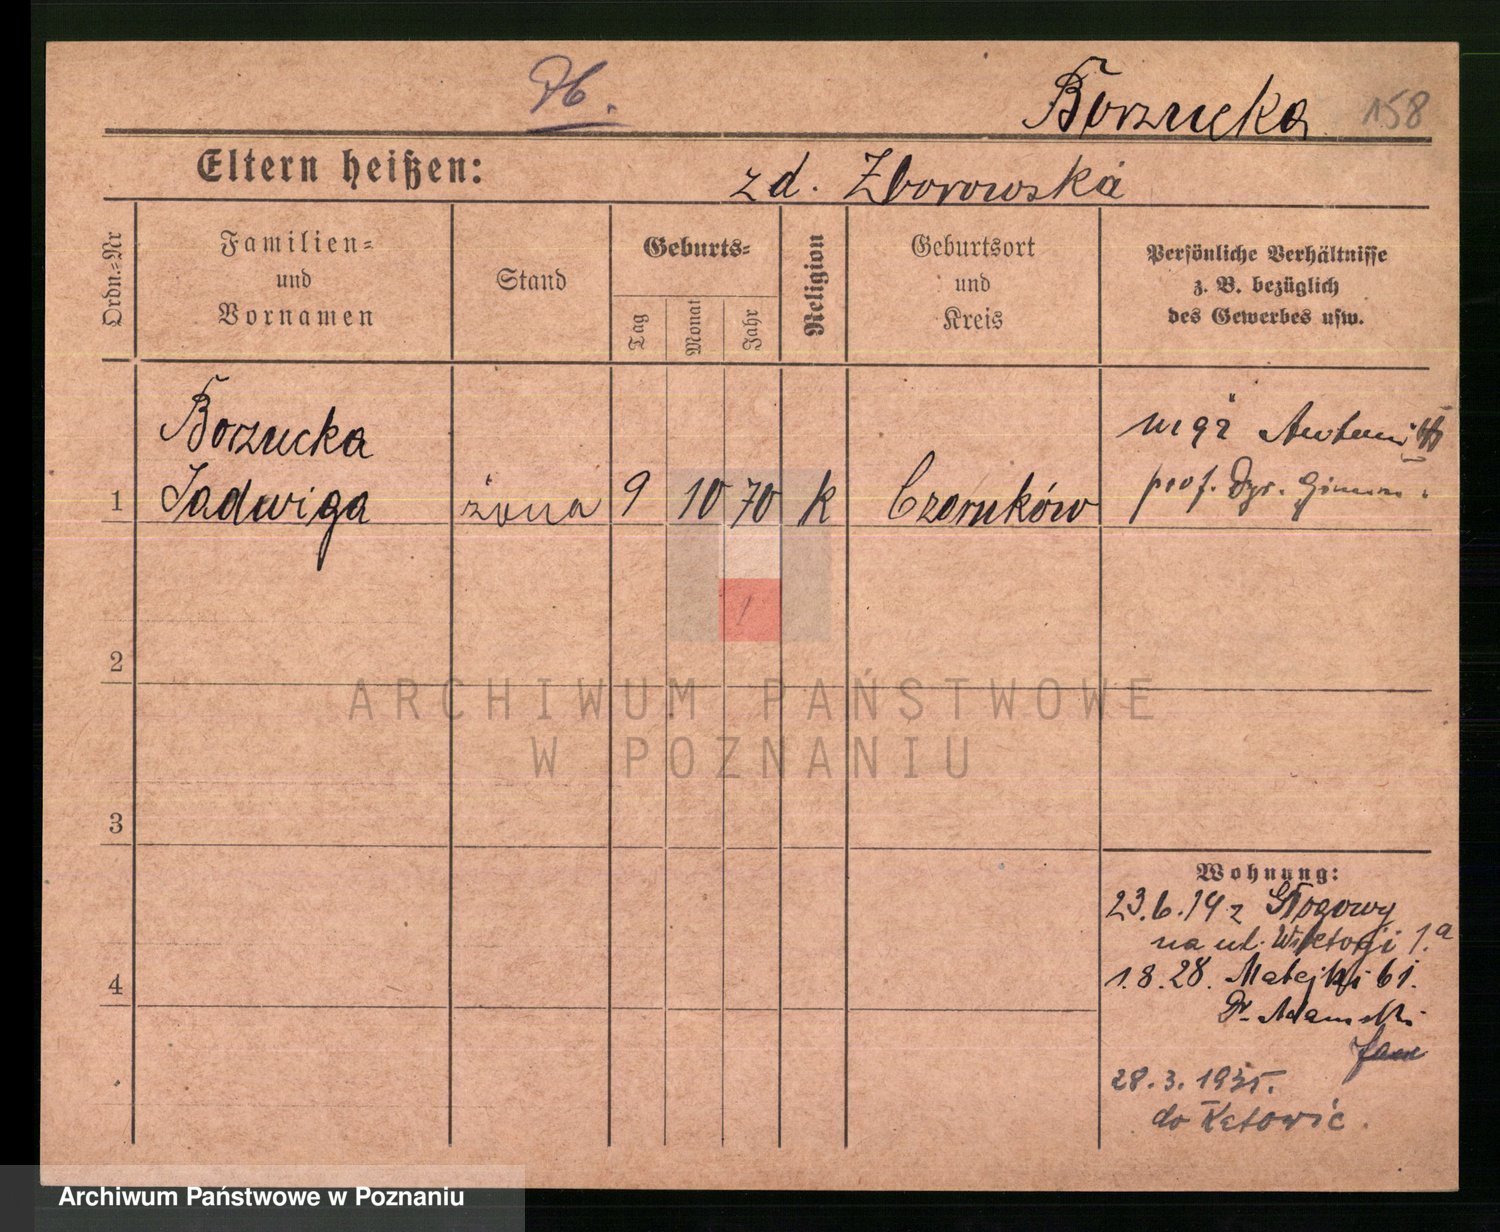 Borzucka 158
Eltern heißen:
zd. Zborowska
Ordn.-Nr
Familien=
und
Vornamen
Stand
Geburts=
Tag
Monat
Jahr
Religion
Geburtsort
und
Kreis
Persönliche Verhältnisse
z. B. bezüglich
des Gewerbes usw.
Borzucka
1 Jadwiga żona 9 10 70 k Czarnków
mąż Antoni
prof. Dyr. Gimn.
2
3
4
Wohnung:
23.6.19 z Głogowy
na ul. Wiktorji 1.a
1.8.28. Matejki 61.
Dr. Adamski
Jan
28.3.1935.
do Katowic.
ARCHIWUM PAŃSTWOWE
W POZNANIU
Archiwum Państwowe w Poznaniu